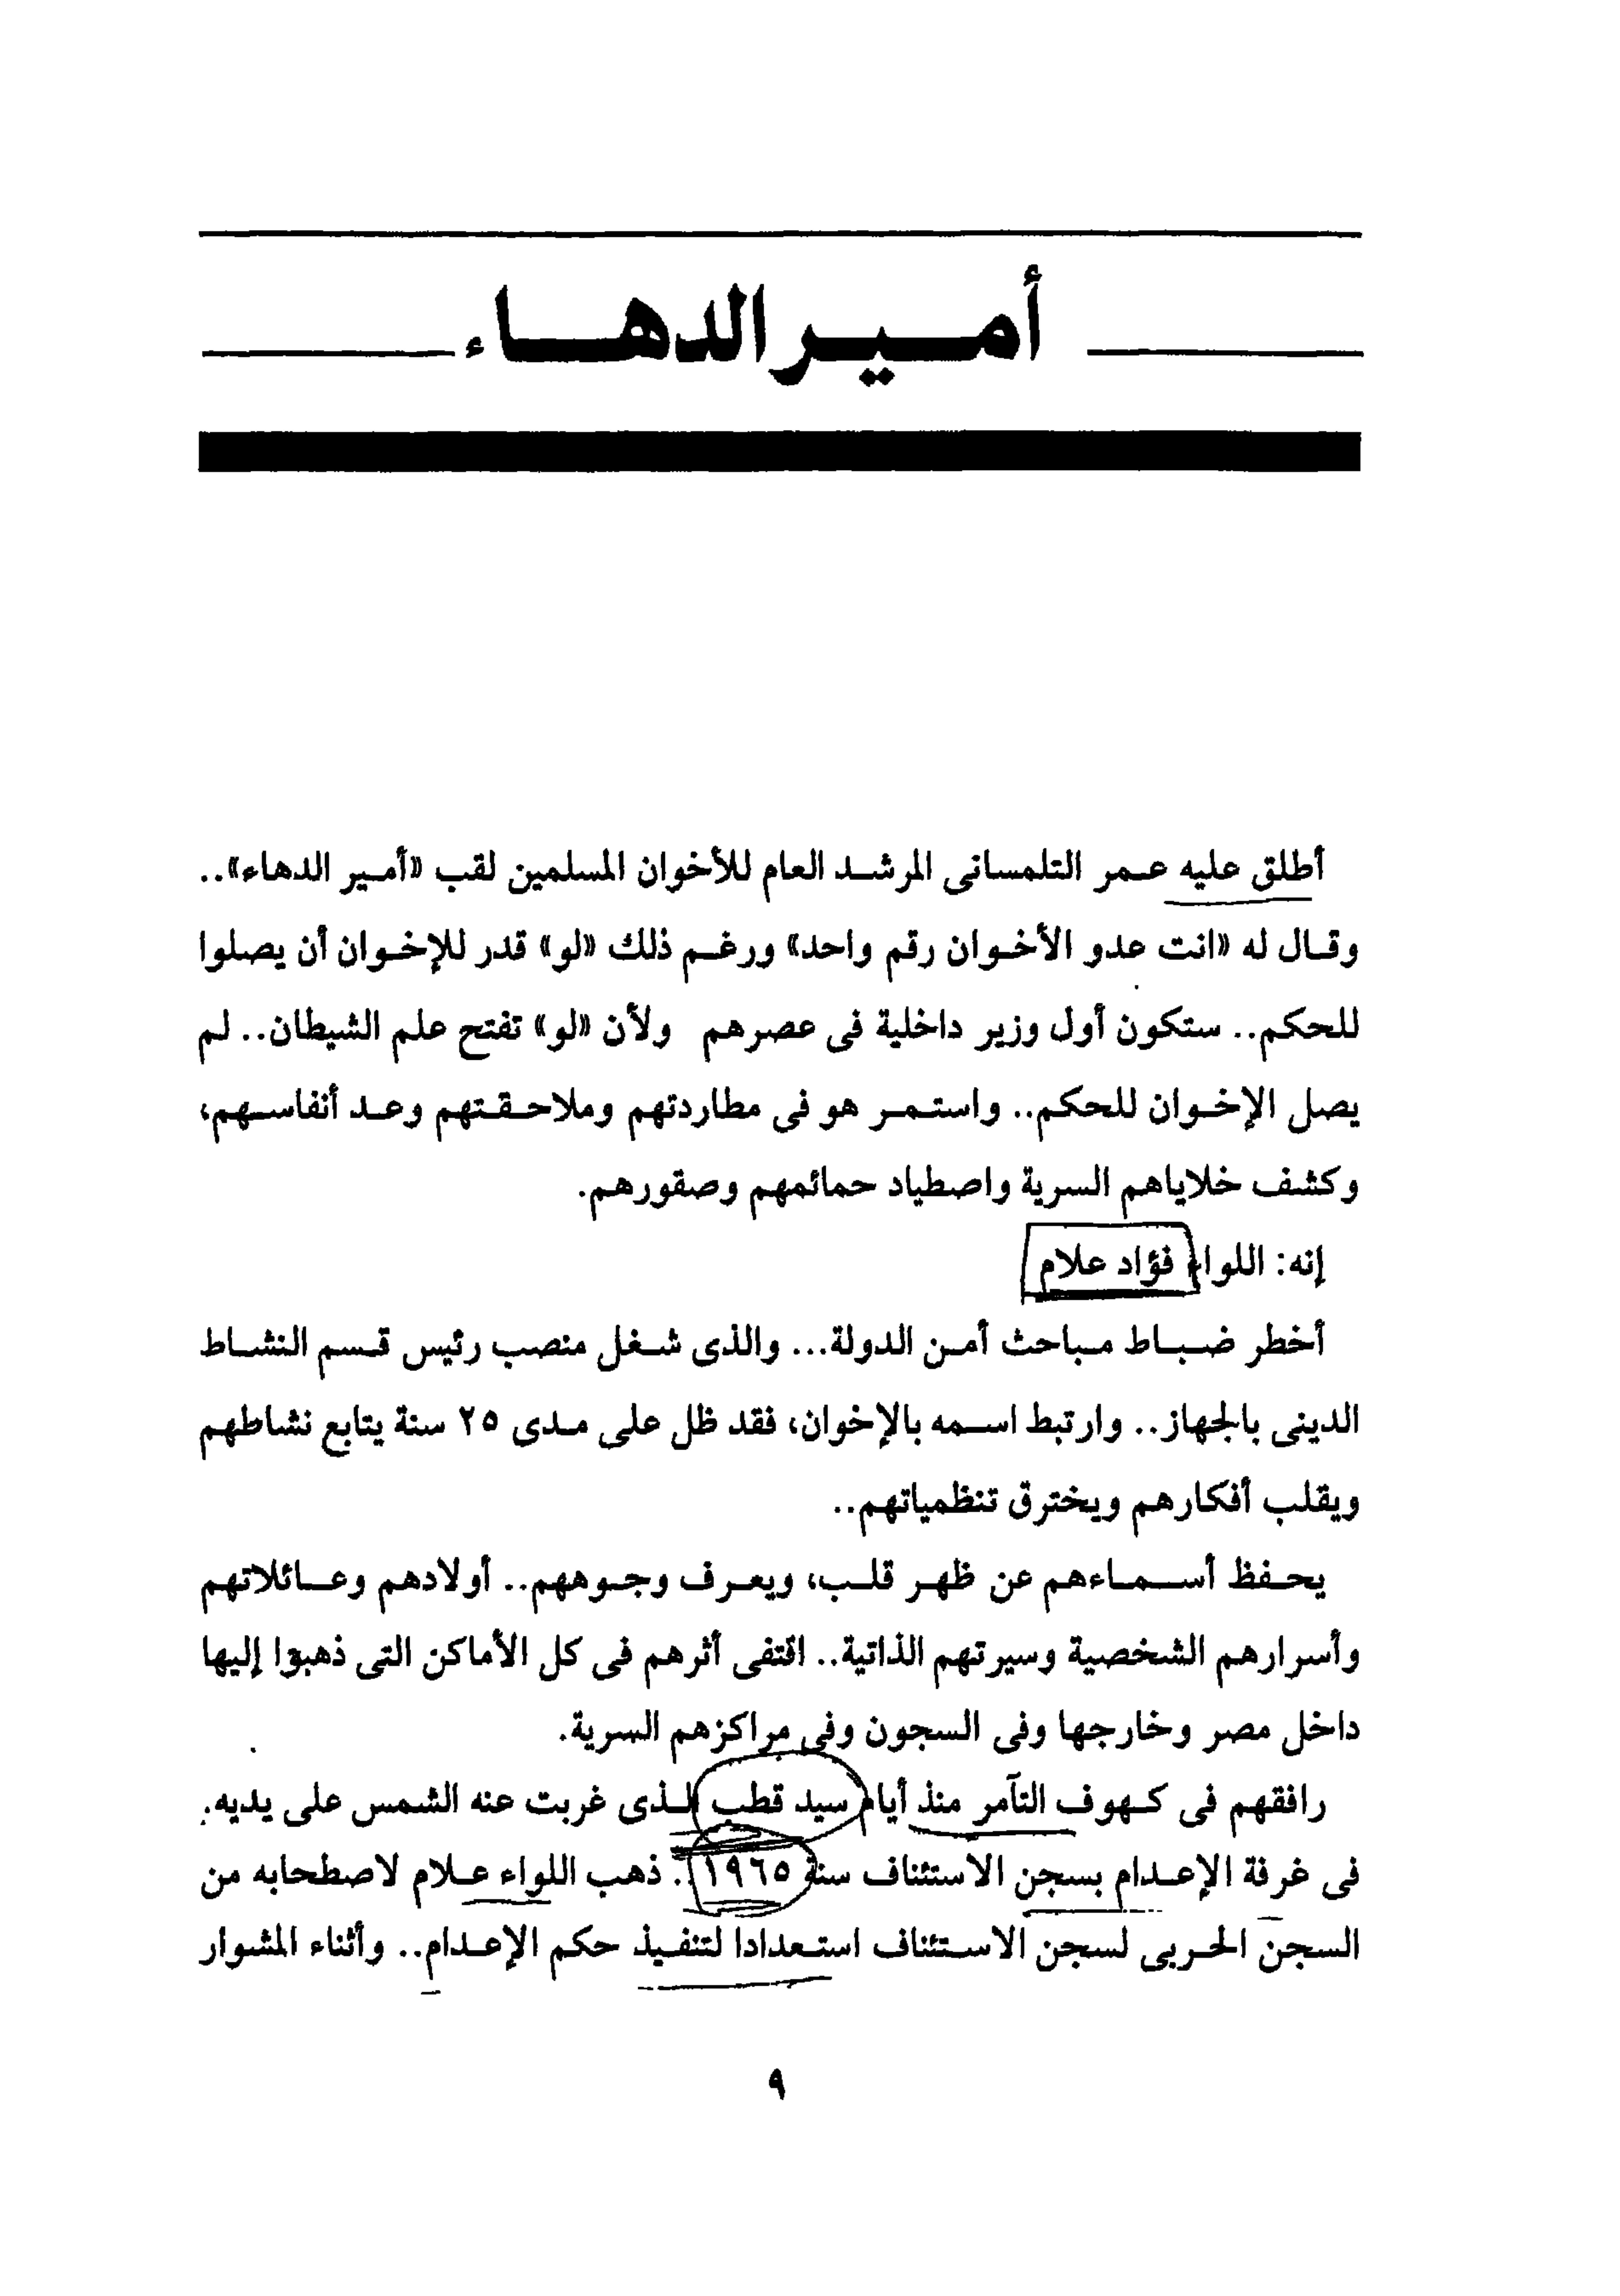 أمير الدهاء
أطلق عليه عمر التلمسانى المرشد العام للأخوان المسلمين لقب «أمير الدهاء»..
وقال له «انت عدو الأخوان رقم واحد» ورغم ذلك «لو» قدر للإخوان أن يصلوا
للحكم.. ستكون أول وزير داخلية فى عصرهم ولأن «لو» تفتح علم الشيطان.. لم
يصل الإخوان للحكم.. واستمر هو فى مطاردتهم وملاحقتهم وعد أنفاسهم،
وكشف خلاياهم السرية واصطياد حمائمهم وصقورهم.
إنه: اللواء فؤاد علام
أخطر ضباط مباحث أمن الدولة... والذى شغل منصب رئيس قسم النشاط
الدينى بالجهاز.. وارتبط اسمه بالإخوان، فقد ظل على مدى ٢٥ سنة يتابع نشاطهم
ويقلب أفكارهم ويخترق تنظمياتهم..
يحفظ أسماءهم عن ظهر قلب، ويعرف وجوههم.. أولادهم وعائلاتهم
وأسرارهم الشخصية وسيرتهم الذاتية.. اقتفى أثرهم فى كل الأماكن التى ذهبوا إليها
داخل مصر وخارجها وفى السجون وفى مراكزهم السرية.
رافقهم فى كهوف التآمر منذ أيام سيد قطب الذى غربت عنه الشمس على يديه.
فى غرفة الإعدام بسجن الاستئناف سنة ١٩٦٥.. ذهب اللواء علام لاصطحابه من
السجن الحربى لسجن الاستئناف استعدادا لتنفيذ حكم الإعدام.. وأثناء المشوار
٩